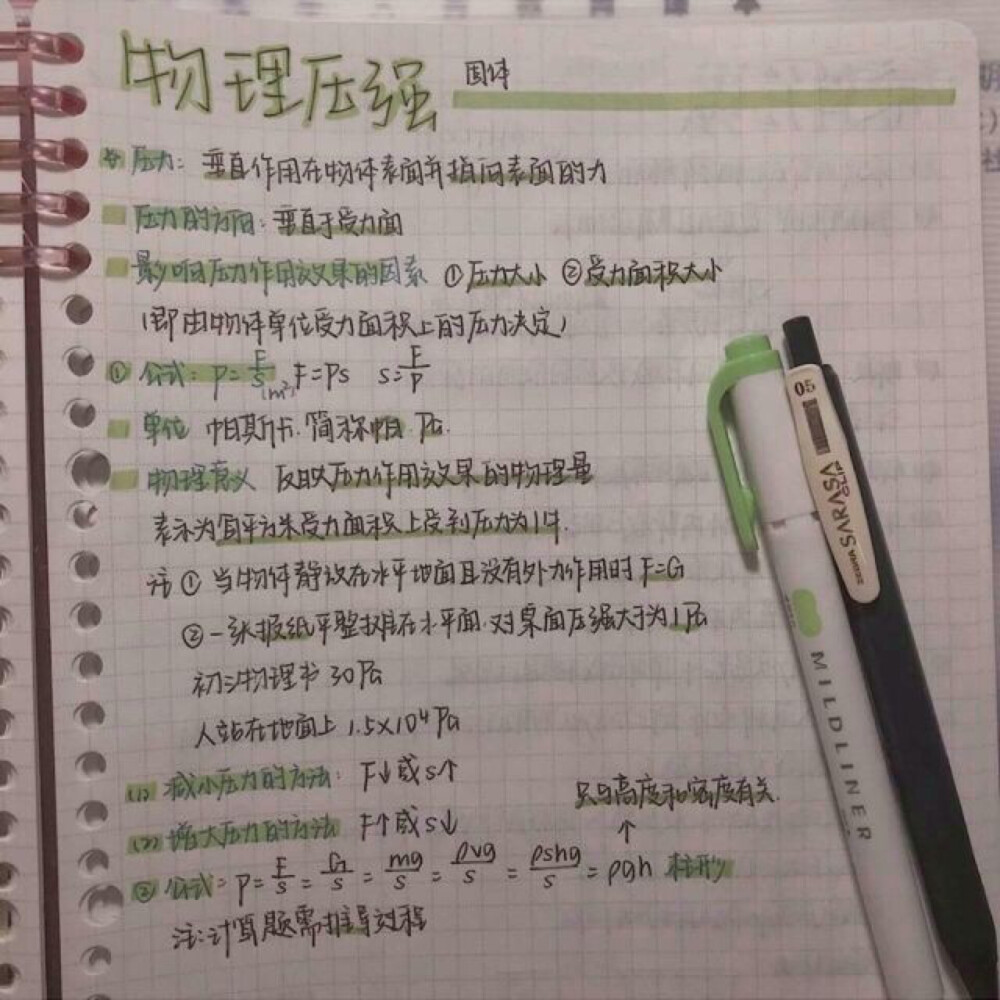 物理压强 固体
压力：垂直作用在物体表面并指向表面的力
压力的方向：垂直于受力面
影响压力作用效果的因素 ①压力大小 ②受力面积大小
（即由物体单位受力面积上的压力决定）
① 公式：P=F/S (m²) F=PS S=F/P
单位 帕斯卡.简称帕 Pa.
物理意义 反映压力作用效果的物理量
表示为每平方米受力面积上受到压力为1牛.
注 ① 当物体静放在水平地面且没有外力作用时 F=G
② 一张报纸平整摊在水平面.对桌面压强大于为1Pa
初三物理书 30Pa
人站在地面上 1.5×10⁴Pa
(1) 减小压力的方法： F↓或S↑
只与高度和密度有关.
↑
(2) 增大压力的方法 F↑或S↓
② 公式= P=F/S=G/S=mg/S=ρvg/S=ρshg/S=ρgh 柱形
注：计算题需推导过程
05
SARASA
MILDLINER